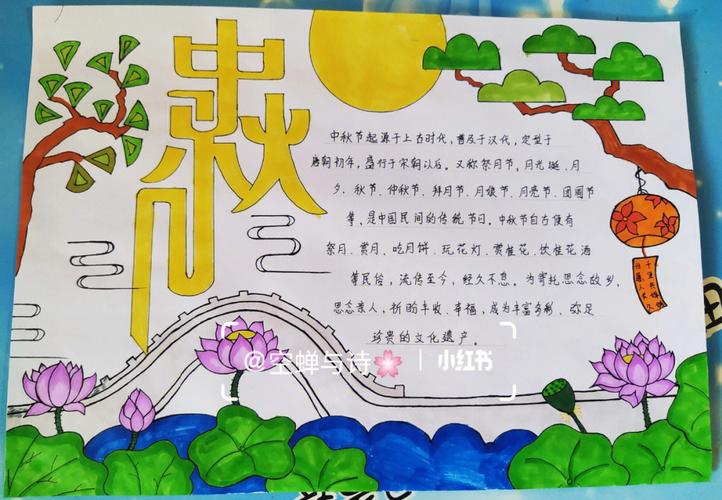 中秋节
中秋节起源于上古时代，普及于汉代，定型于
唐朝初年，盛行于宋朝以后。又称祭月节、月光诞、月
夕、秋节、仲秋节、拜月节、月娘节、月亮节、团圆节
等，是中国民间的传统节日。中秋节自古便有
祭月、赏月、吃月饼、玩花灯、赏桂花、饮桂花酒
等民俗，流传至今，经久不息。为寄托思念故乡，
思念亲人，祈盼丰收、幸福，成为丰富多彩、弥足
珍贵的文化遗产。
但愿人长久
千里共婵娟
@空蝉与诗🌸 | 小红书